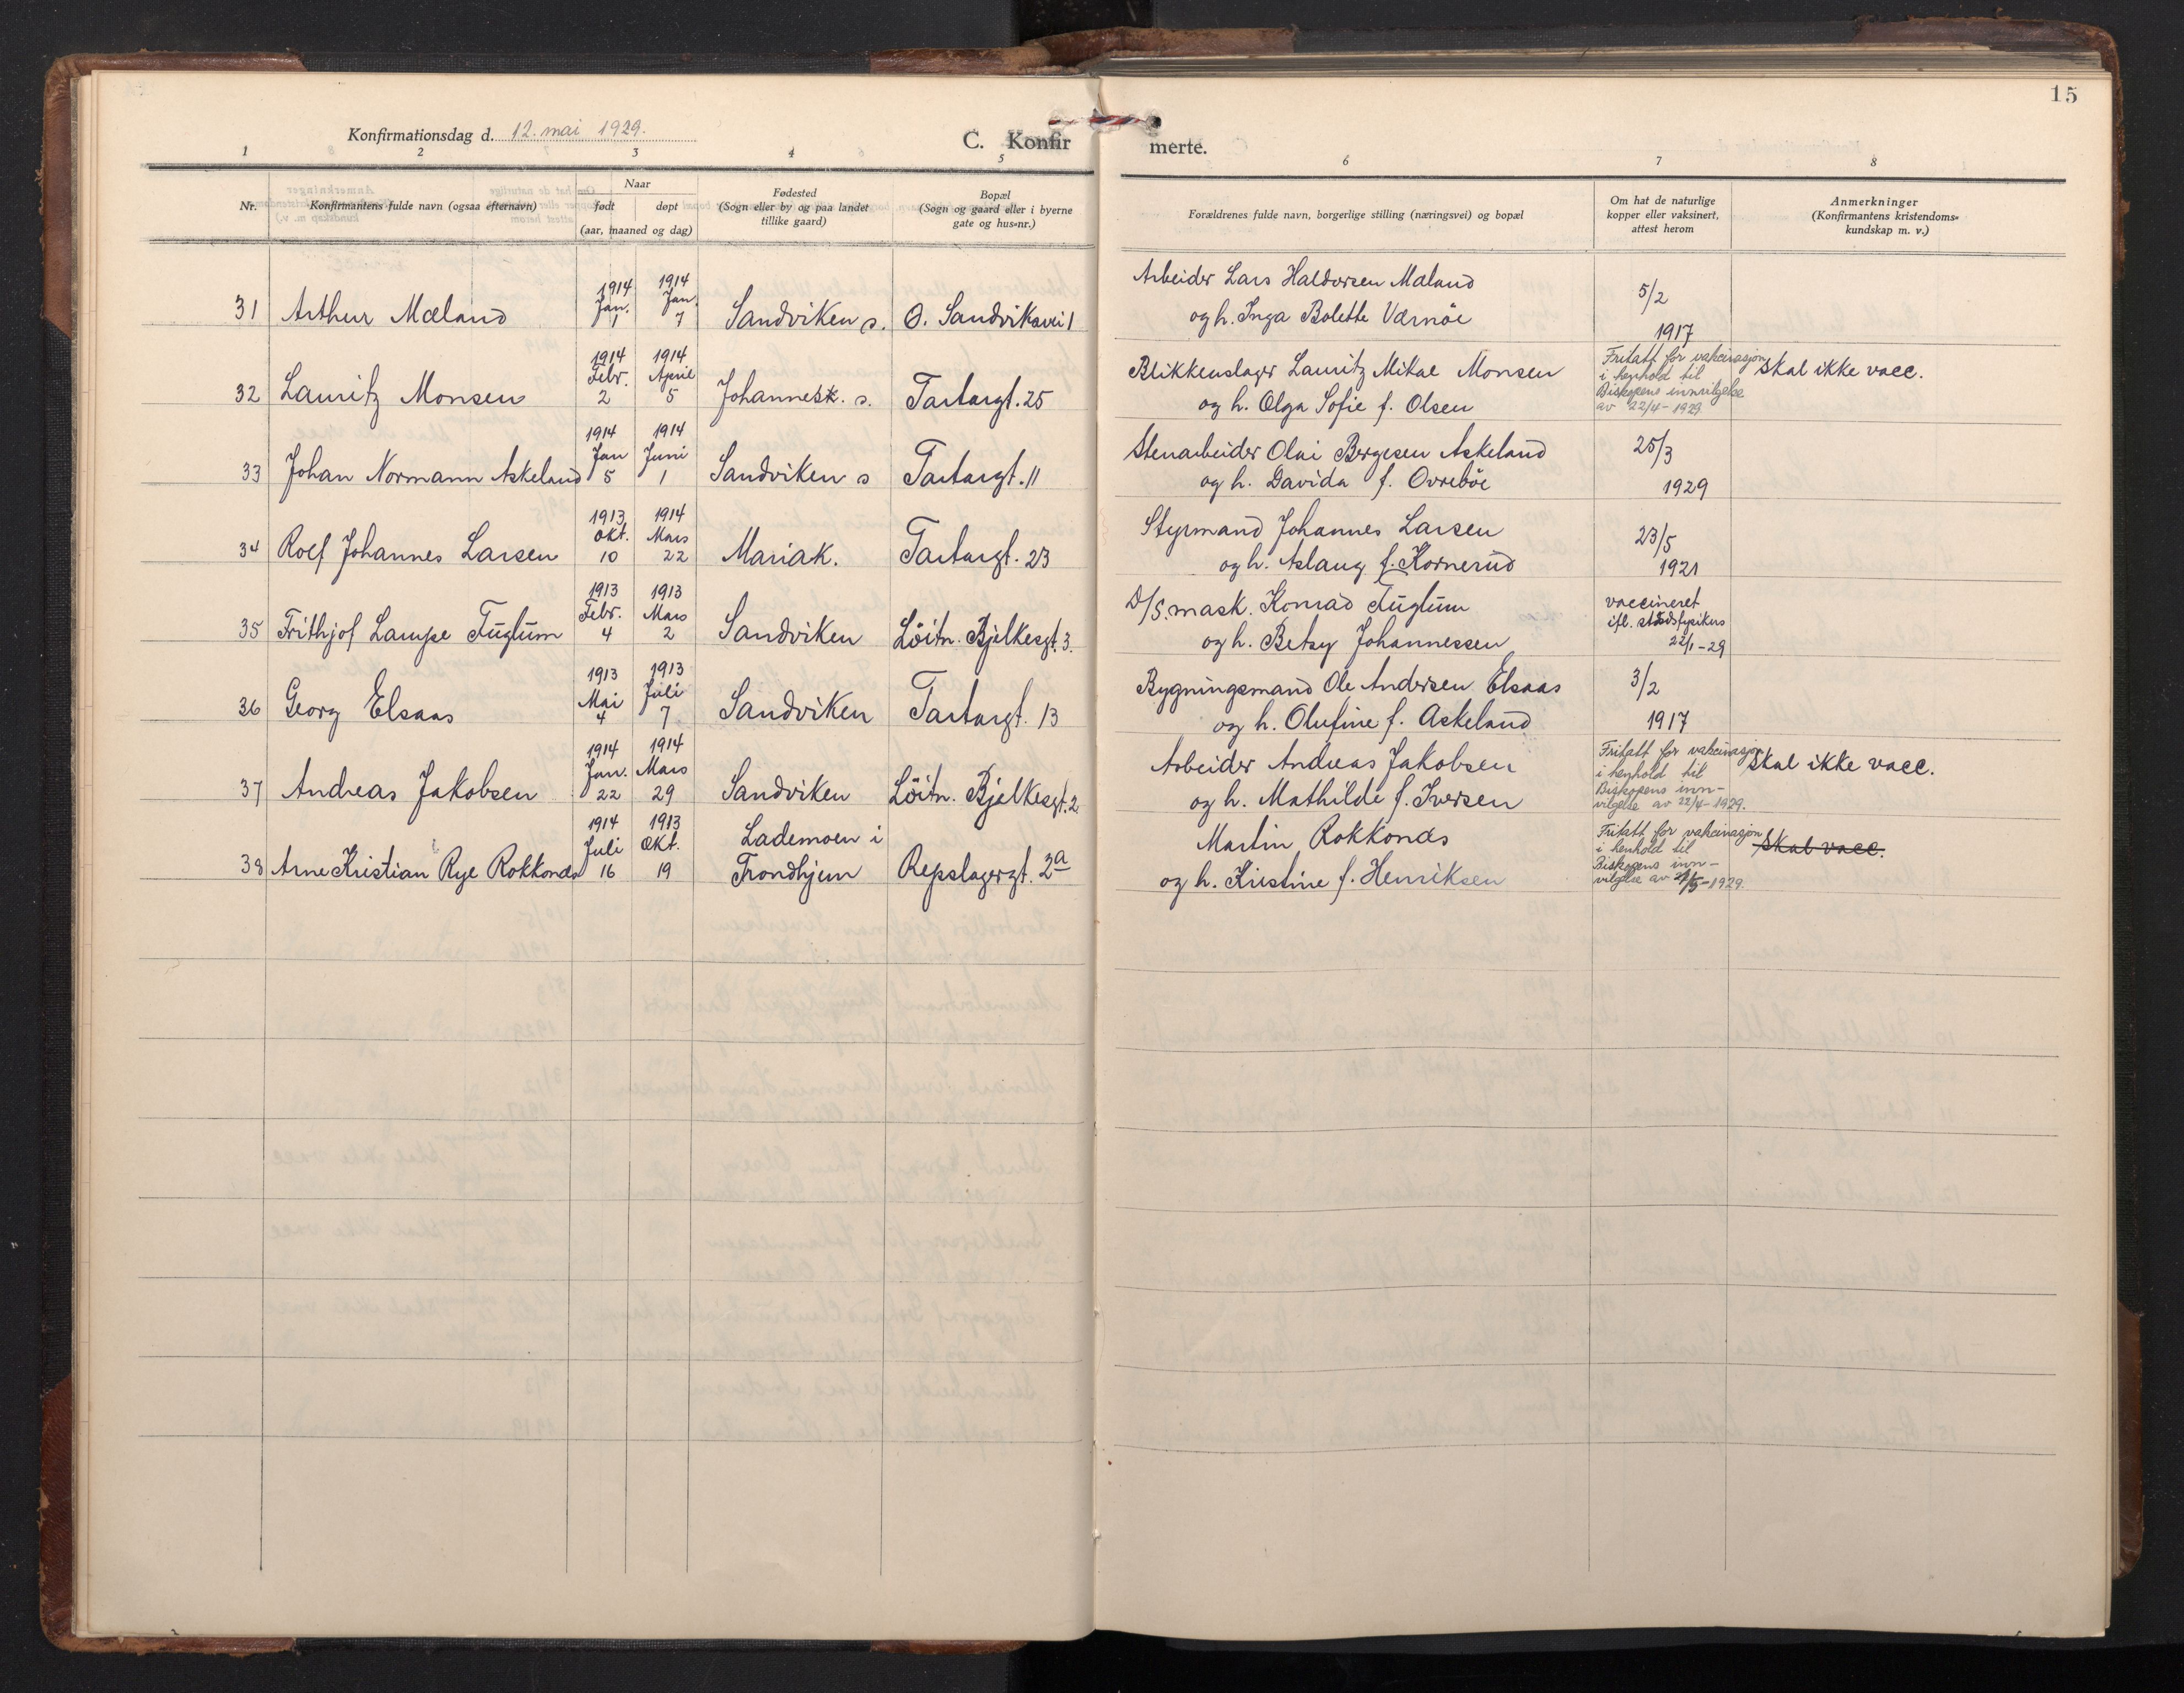 15
Konfirmationsdag d. 12. mai 1929.
C. Konfirmerte.
1 2 3 4 5 6 7 8
Nr.
Konfirmantens fulde navn (ogsaa efternavn)
Naar
født døpt
(aar, maaned og dag)
Fødested
(Sogn eller by og paa landet
tillike gaard)
Bopæl
(Sogn og gaard eller i byerne
gate og hus-nr.)
Forældrenes fulde navn, borgerlige stilling (næringsvei) og bopæl
Om hat de naturlige
kopper eller vaksinert,
attest herom
Anmerkninger
(Konfirmantens kristendoms-
kundskap m. v.)
1914 1914
Jan. Jan.
31 Arthur Mæland 1 7 Sandviken s. Ø. Sandviksvei 1
Arbeider Lars Haldorsen Mæland
og h. Inga Bolette Værnöe
5/2
1917
1914 1914
Febr. April
32 Lauritz Monsen 2 5 Johannesk. s. Tartargt. 25
Blikkenslager Lauritz Mikal Monsen
og h. Olga Sofie f. Olsen
Fritatt for vakcinasjon
i henhold til
Biskopens innvilgelse
av 22/4-1929
Skal ikke vacc.
1914 1914
Jan Juni
33 Johan Normann Askeland 5 1 Sandviken s Tartargt. 11
Stenarbeider Olai Bergesen Askeland
og h. Davida f. Ovreböe
25/3
1929
1913 1914
Okt. Mars
34 Rolf Johannes Larsen 10 22 Mariak. Tartargt. 23
Styrmand Johannes Larsen
og h. Aslaug f. Kornerud
23/5
1921
1913 1913
Febr. Mars
35 Frithjof Lampe Fuglum 4 2 Sandviken Löitn. Bjelkesgt. 3.
D/S. mask. Konrad Fuglum
og h. Betsy Johannessen
vaccineret
ifl. stadsfysikus
22/1-29
1913 1913
Mai Juli
36 Georg Elsaas 4 7 Sandviken Tartargt. 13
Bygningsmand Ole Andersen Elsaas
og h. Olufine f. Askeland
3/2
1917
1914 1914
Jan. Mars
37 Andreas Jakobsen 22 29 Sandviken Löitn. Bjelkesgt. 2
Arbeider Andreas Jakobsen
og h. Mathilde f. Iversen
Fritatt for vakcinasjon
i henhold til
Biskopens inn-
vilgelse av 22/4-1929.
Skal ikke vacc.
1914 1913
Juli Okt. Lademoen i
38 Arne Kristian Rye Rokkones 16 19 Trondhjem Repslagergt. 2a
Martin Rokkones
og h. Kristine f. Henriksen
Fritatt for vakcinasjon
i henhold til
Biskopens inn-
vilgelse av /5-1929.
Skal vacc.